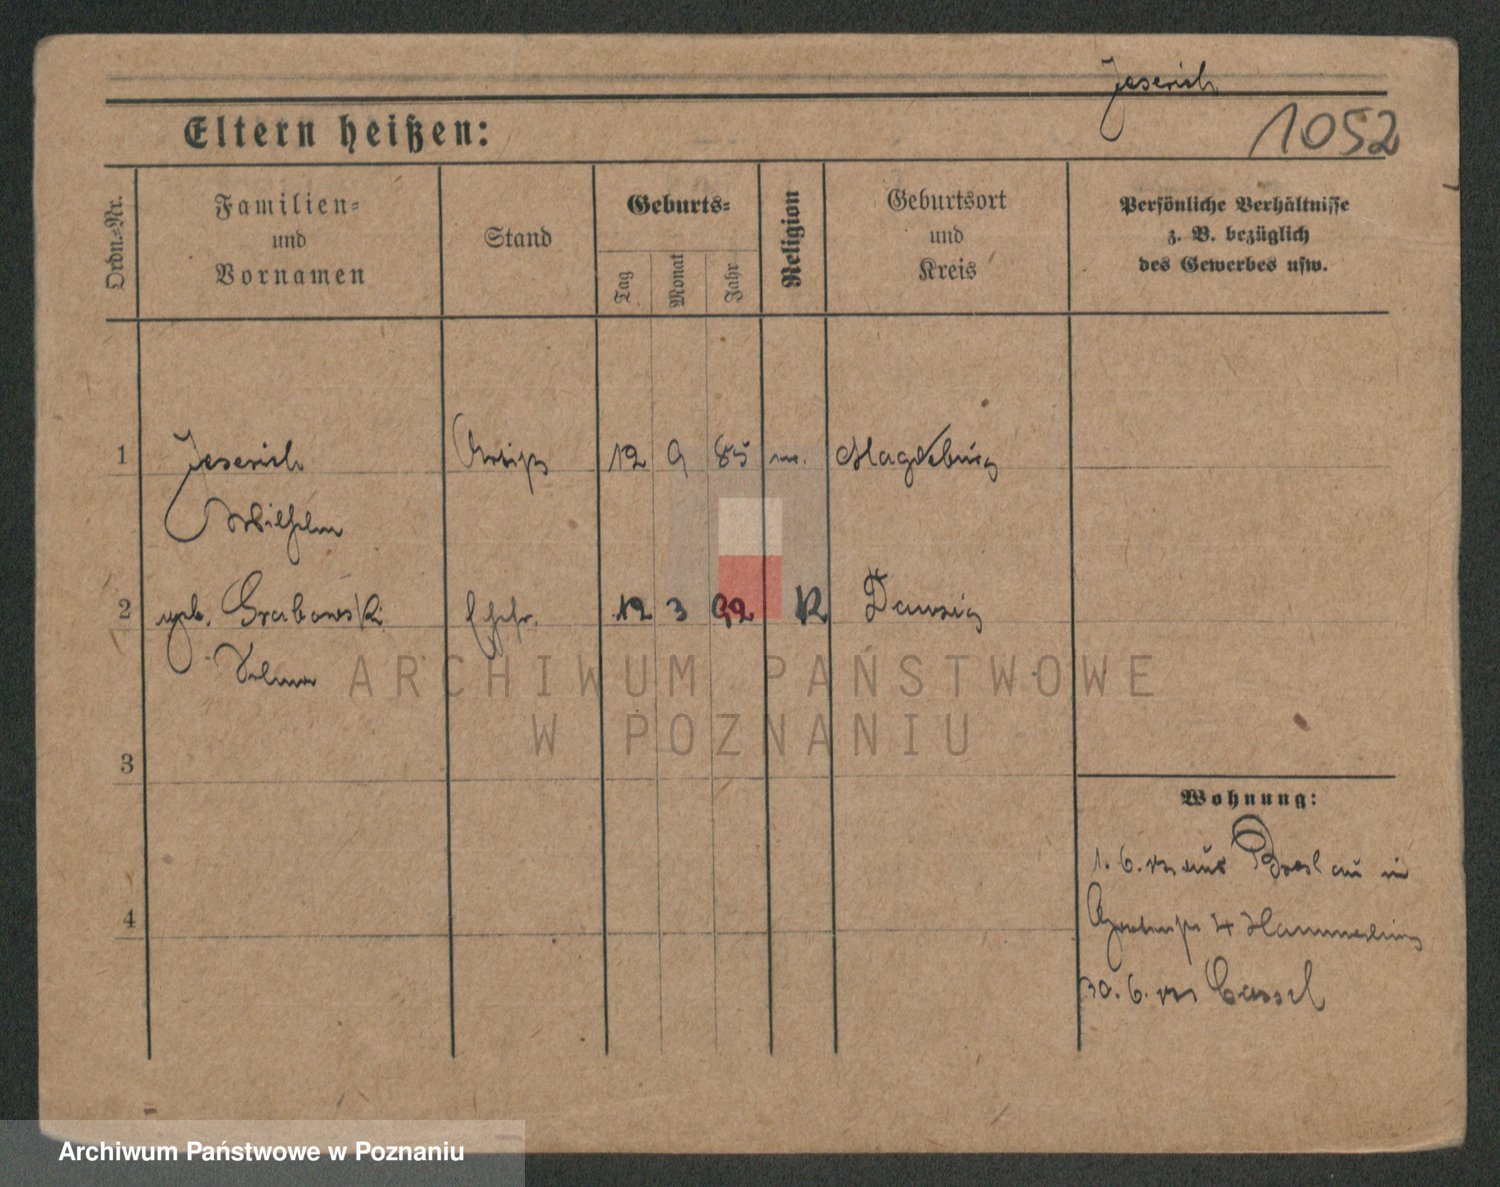 Jeserich
1052
Eltern heißen:
Ordn.-Nr.
Familien-
und
Vornamen
Stand
Geburts-
Tag
Monat
Jahr
Religion
Geburtsort
und
Kreis
Persönliche Verhältnisse
z. B. bezüglich
des Gewerbes usw.
1 Jeserich Artist 12 9 85 Magdeburg
Wilhelm
2 geb. Grabowski Ehefr. 12 3 92 K Danzig
3
4
Wohnung:
1. 6. aus Breslau in
4 Hammerling
30. 6. Cassel
ARCHIWUM PAŃSTWOWE
W POZNANIU
Archiwum Państwowe w Poznaniu